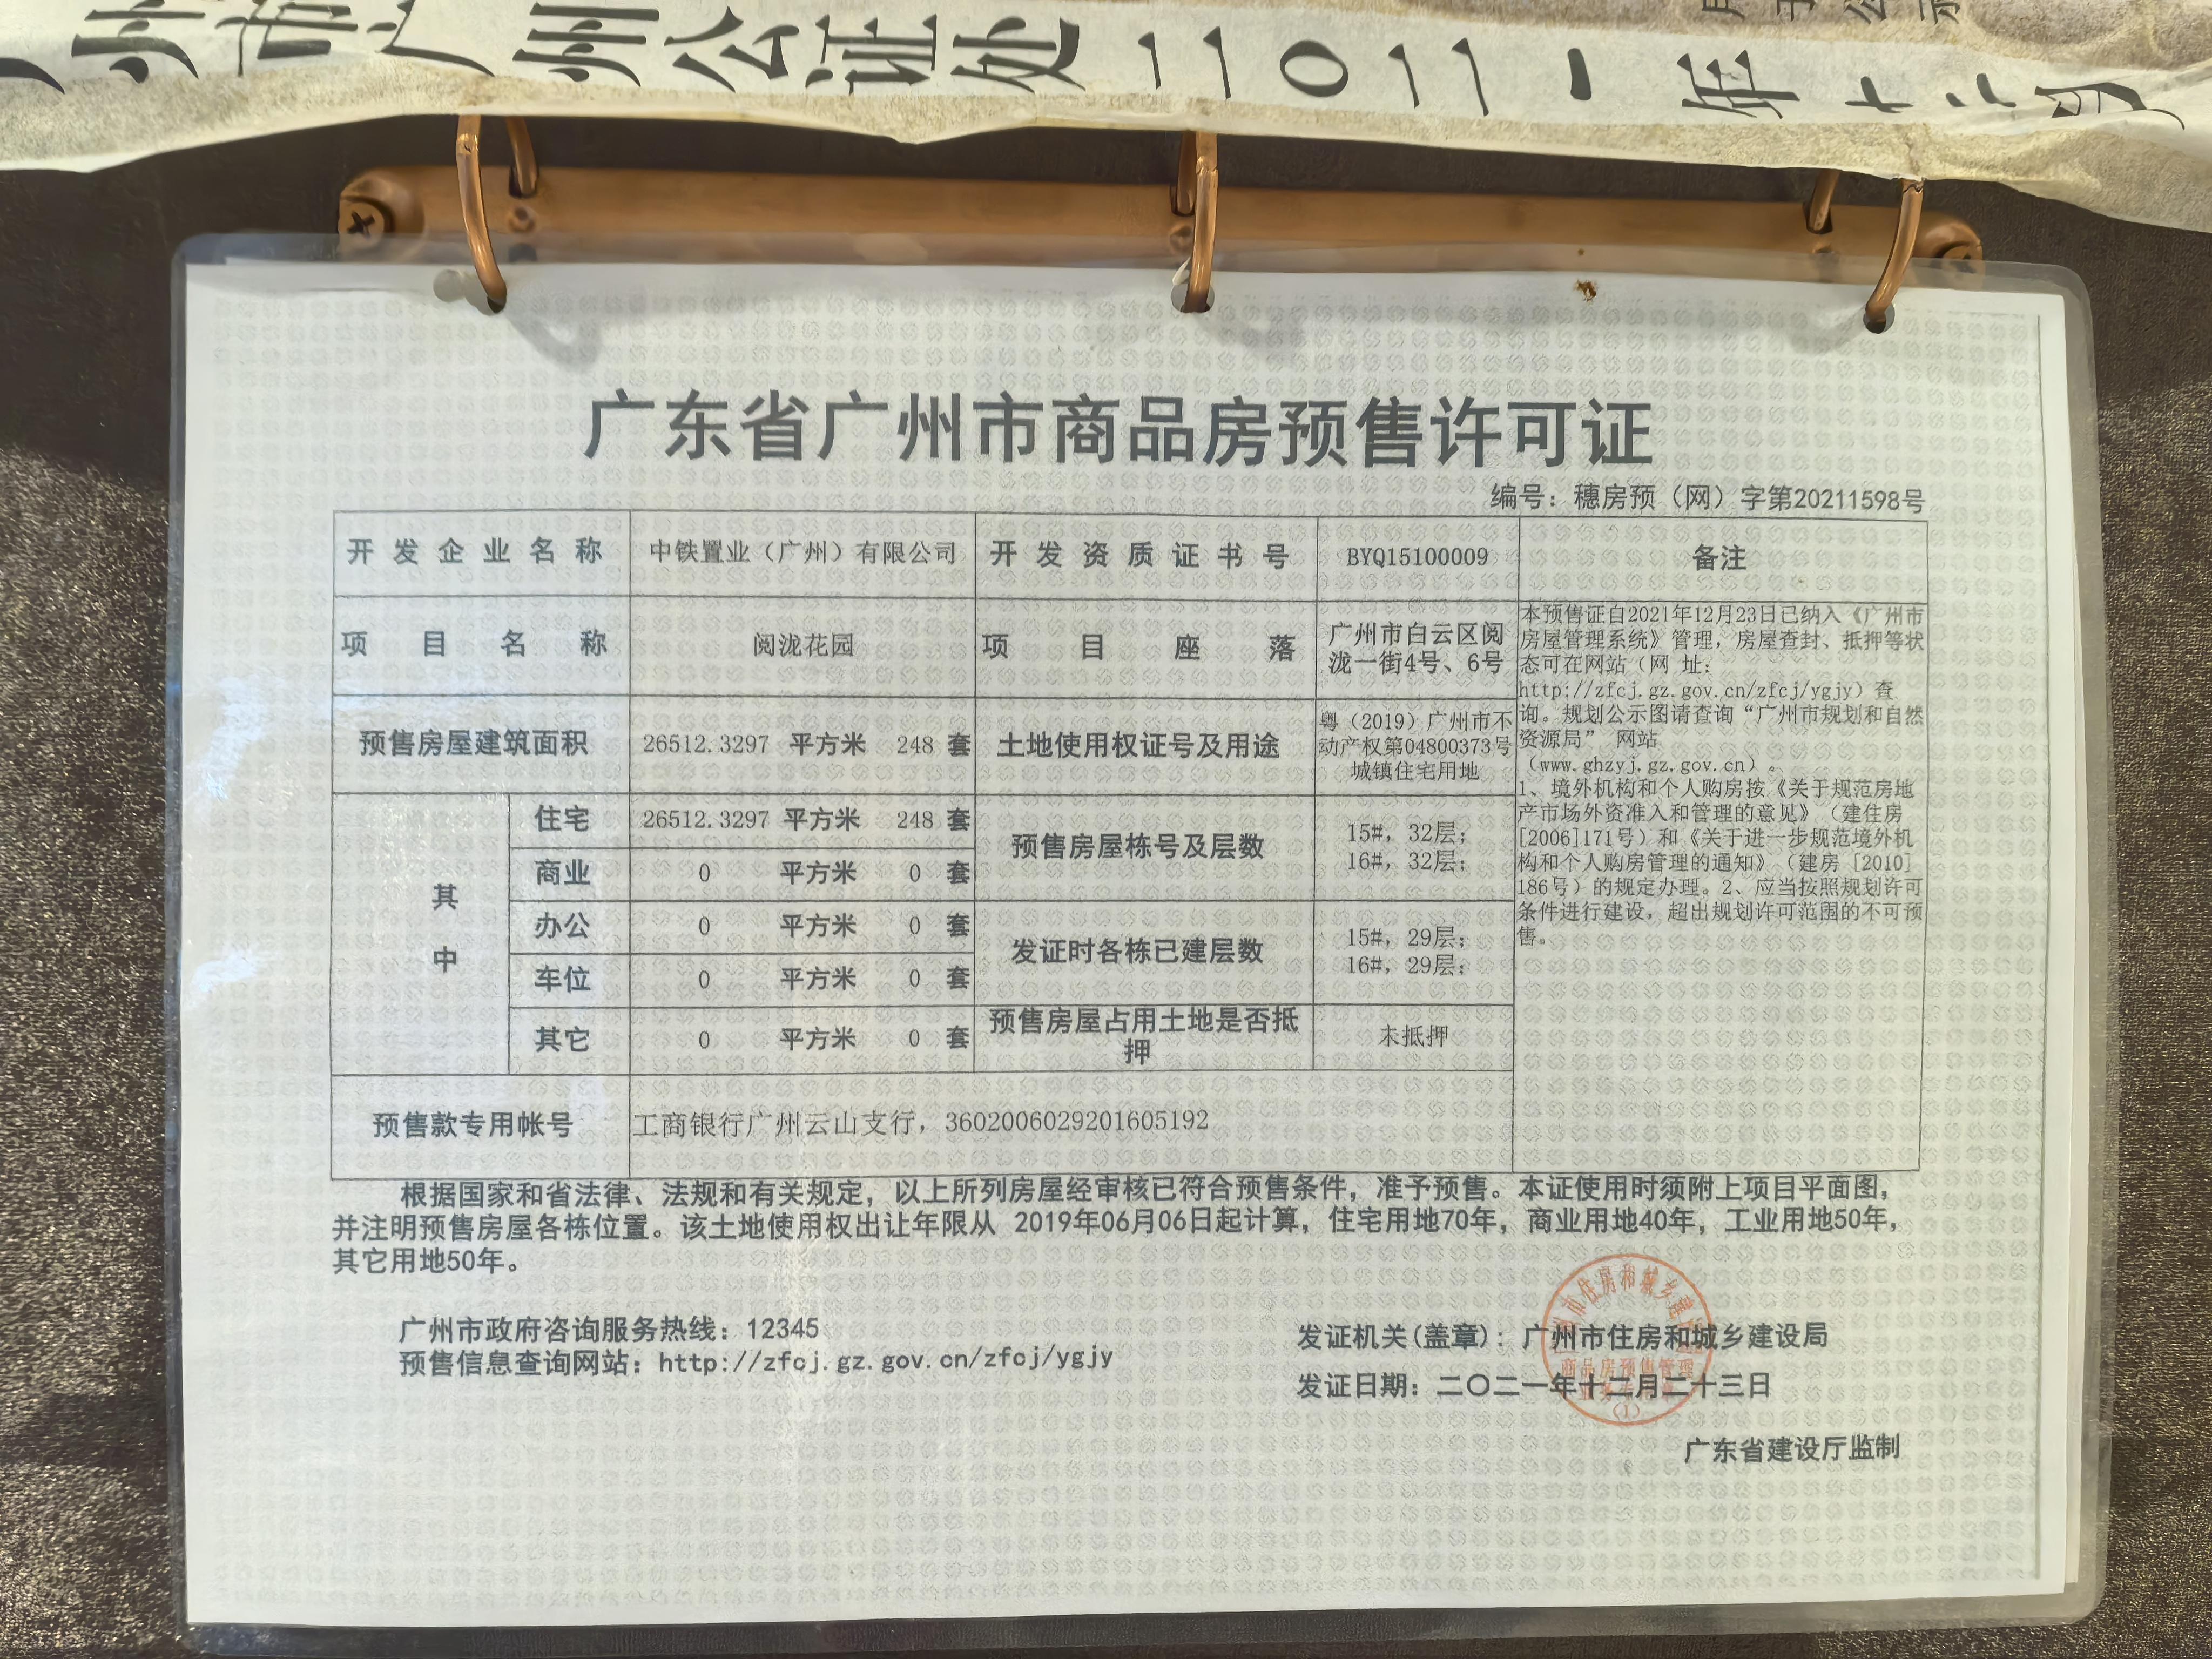 州市广州公证处二〇二一年十二月
广东省广州市商品房预售许可证
编号：穗房预（网）字第20211598号
开发企业名称 中铁置业（广州）有限公司 开发资质证书号 BYQ15100009 备注
项目名称 阅泷花园 项目座落 广州市白云区阅
泷一街4号、6号
预售房屋建筑面积 26512.3297 平方米 248 套 土地使用权证号及用途 粤（2019）广州市不
动产权第04800373号
城镇住宅用地
其中
住宅 26512.3297 平方米 248 套
商业 0 平方米 0 套
办公 0 平方米 0 套
车位 0 平方米 0 套
其它 0 平方米 0 套
预售房屋栋号及层数 15#，32层；
16#，32层；
发证时各栋已建层数 15#，29层；
16#，29层；
预售房屋占用土地是否抵
押 未抵押
本预售证自2021年12月23日已纳入《广州市
房屋管理系统》管理，房屋查封、抵押等状
态可在网站（网 址：
http://zfcj.gz.gov.cn/zfcj/ygjy）查
询。规划公示图请查询“广州市规划和自然
资源局” 网站
（www.ghzyj.gz.gov.cn）。
1、境外机构和个人购房按《关于规范房地
产市场外资准入和管理的意见》（建住房
[2006]171号）和《关于进一步规范境外机
构和个人购房管理的通知》（建房［2010］
186号）的规定办理。2、应当按照规划许可
条件进行建设，超出规划许可范围的不可预
售。
预售款专用帐号 工商银行广州云山支行，3602006029201605192
根据国家和省法律、法规和有关规定，以上所列房屋经审核已符合预售条件，准予预售。本证使用时须附上项目平面图，
并注明预售房屋各栋位置。该土地使用权出让年限从 2019年06月06日起计算，住宅用地70年，商业用地40年，工业用地50年，
其它用地50年。
广州市政府咨询服务热线：12345
预售信息查询网站：http://zfcj.gz.gov.cn/zfcj/ygjy
发证机关(盖章)：广州市住房和城乡建设局
发证日期：二〇二一年十二月二十三日
市住房和城乡建
商品房预售管理
(1)
广东省建设厅监制